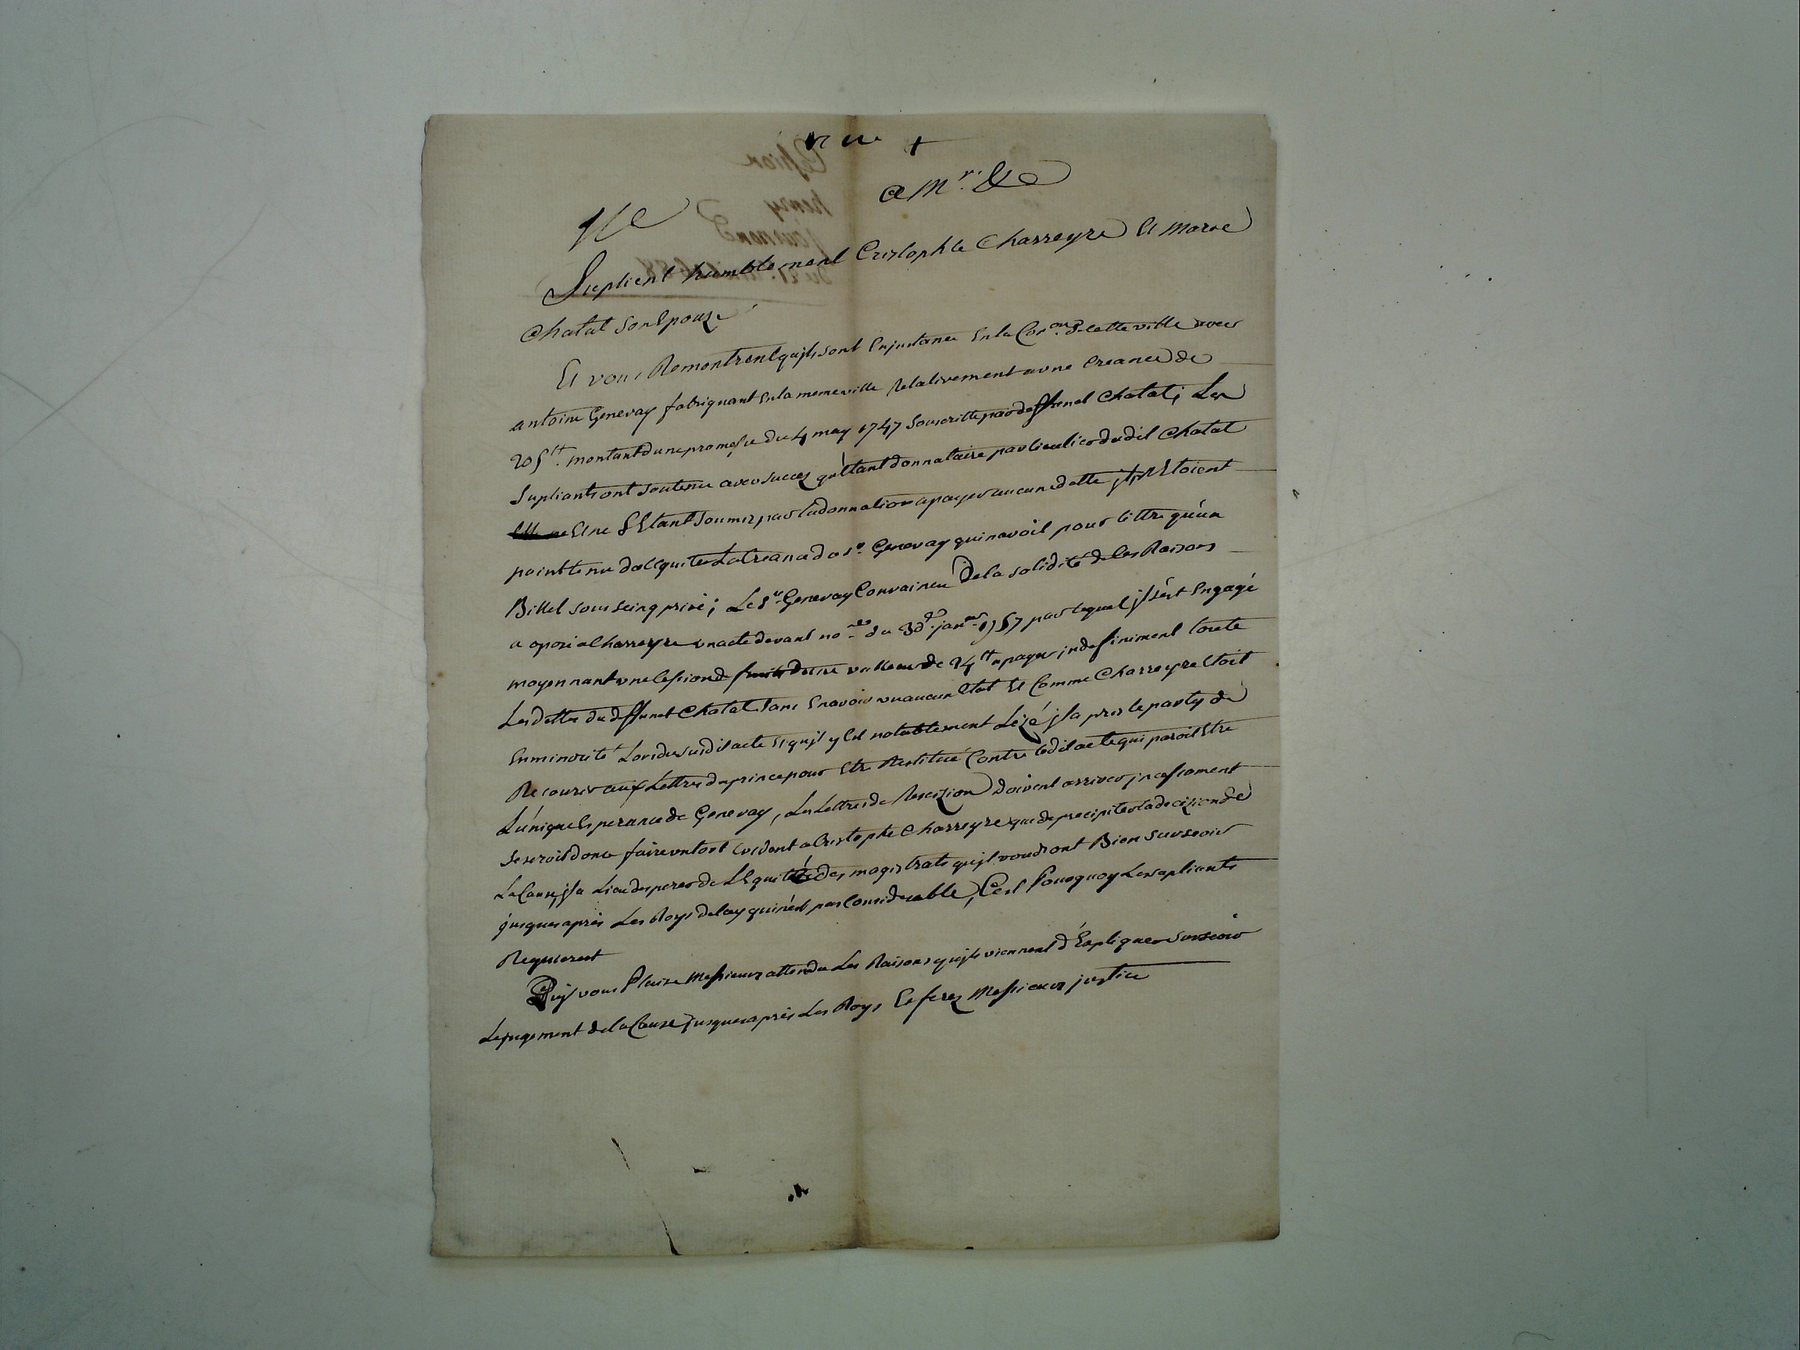 a Mrs. &c
Suplient humblement Cristophle Charreyre Et Marie
Chatal son Epouze
Et vous Remontrent qujls sont En jnstance En la Con.on de cette ville avec
antoine Genevay fabriquant En la meme ville Relativement a une Creance de
205 tt. montant dune promesse du 4 may 1747 souscritte par deffunct Chatal; Les
Supliants ont soutenu avec succez qu'Etant donnataire particulier dudit Chatal
Et ne S'Etant soumis par la donnation a payer aucune dette jls n'Etoient
point tenu d'acquiter La Creance de sr. Genevay qui n'avoit pour tittre qu'un
Billet sous seing privé; Le Sr. Genevay Convaincu De la solidité de les Raisons
a oposé a Charreyre un acte devant no.re du 3d. janer. 1757 par lequel jl s'est Engagé
moyennant une Cession de fruits de valleur de 24 tt a payer jndefiniment toute
Les dettes du deffunct Chatal sans En avoir vu aucun Etat Et Comme Charreyre Etoit
En minorité Lors du susdit acte Et qujl y Est notablement Lézé jl a pris le party de
Recourir aux Lettres du prince pour Etre Restitué Contre ledit acte qui paroit Etre
L'unique Esperance de Genevay, Les Lettres de Rescizion doivent arriver jncessament
Se seroit donc faire un tort Evident a Cristophe Charreyre que de precipiter la decizion de
La Cause, jl a Lieu desperer de L'Equité des magistrats qujls voudront Bien surseoir
jusques après Les Roys delay qui n'est pas Considerable, C'est Pourquoy Les supliants
Requierent
Qujl vous Plaise Messieurs attendu Les Raisons qujls viennent d'Expliquer surseoir
Le jugement de la Cause jusques après Les Roys Et ferez Messieurs justice